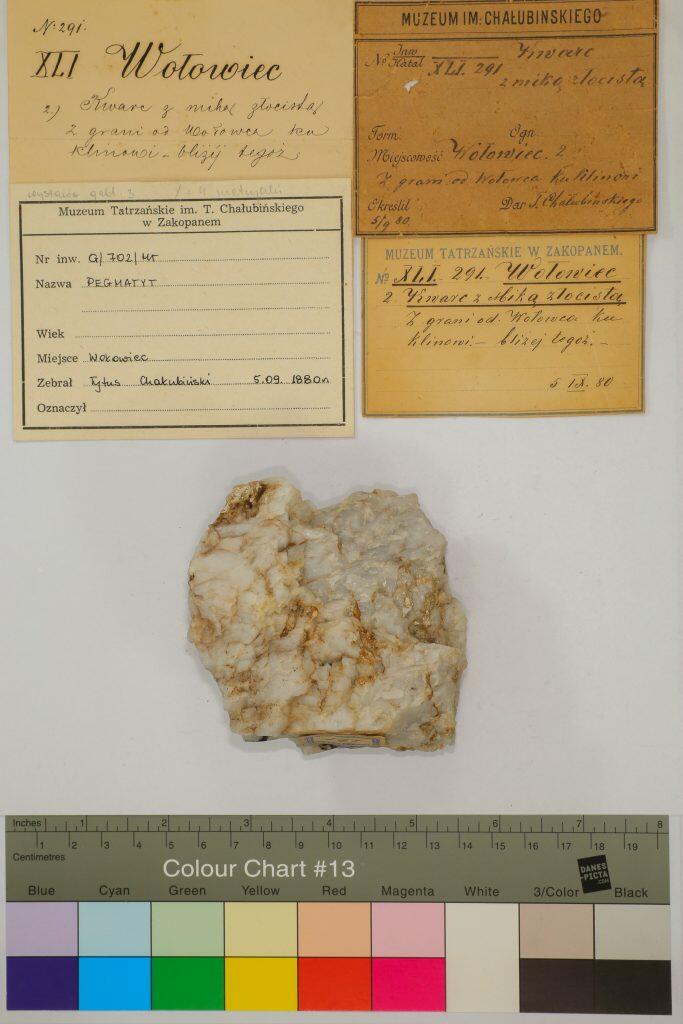 No 291.
XLI Wołowiec
2) Kwarc z miką złocistą
z grani od Wołowca ku
klinowi - bliżej tegoż
wystawa gabl. 3
MUZEUM IM. CHAŁUBINSKIEGO
No Inw Katal XLI. 291 Kwarc
z miką złocistą
Form. Ogn
Miejscowość Wołowiec. 2
Z grani od Wołowca ku Klinowi
Określił Dar T. Chałubińskiego
5/9 80
Muzeum Tatrzańskie im. T. Chałubińskiego
w Zakopanem
Nr inw. G/702/MT
Nazwa PEGMATYT
Wiek
Miejsce Wołowiec
Zebrał Tytus Chałubiński 5.09. 1880r
Oznaczył
MUZEUM TATRZAŃSKIE W ZAKOPANEM.
No XLI. 291. Wołowiec
2. Kwarc z Miką złocistą
Z grani od Wołowca ku
klinowi - bliżej tegoż. -
5 IX. 80
Inches 1 2 3 4 5 6 7 8
1 2 3 4 5 6 7 8 9 10 11 12 13 14 15 16 17 18 19
Centimetres
Colour Chart #13
DANES
-PICTA
.COM
Blue Cyan Green Yellow Red Magenta White 3/Color Black